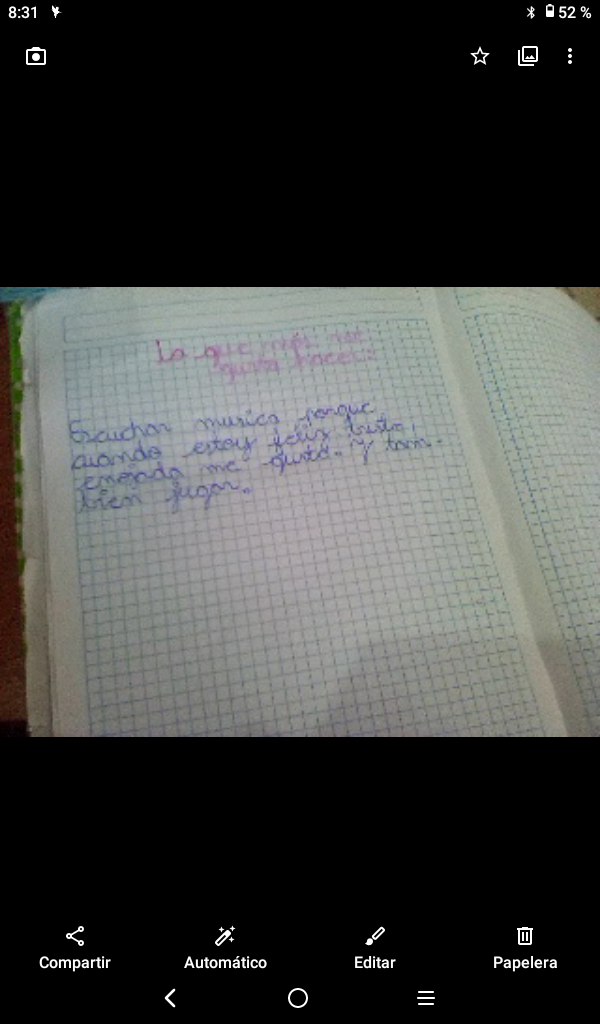 8:31
52 %
Lo que más me
gusta hacer:
Escuchar musica porque
cuando estoy feliz, triste,
enojada me gusta. Y tam-
bien jugar.
Compartir
Automático
Editar
Papelera